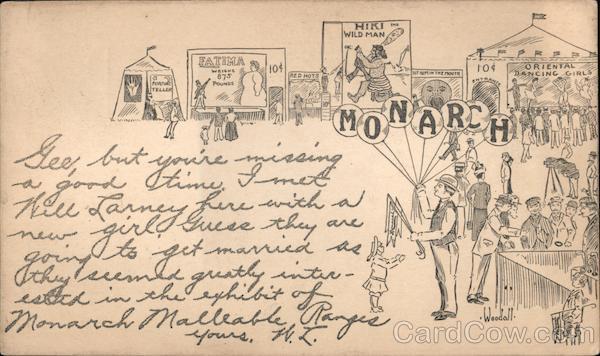 HIKI THE
WILD MAN
10¢
FATIMA
WEIGHS
675
POUNDS
10¢
FORTUNE
TELLER
RED HOTS
HIT HIM IN THE MOUTH
10¢
ORIENTAL
DANCING GIRLS
MONARCH
Gee, but you're missing
a good time, I met
Will Larney here with a
new girl. Guess they are
going to get married as
they seemed greatly inter-
ested in the exhibit of
Monarch Malleable Ranges
Yours, W.L.
Woodall
CardCow.com